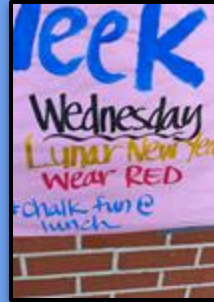 eek
Wednesday
Lunar New Ye
Wear RED
*Chalk fun @
lunch